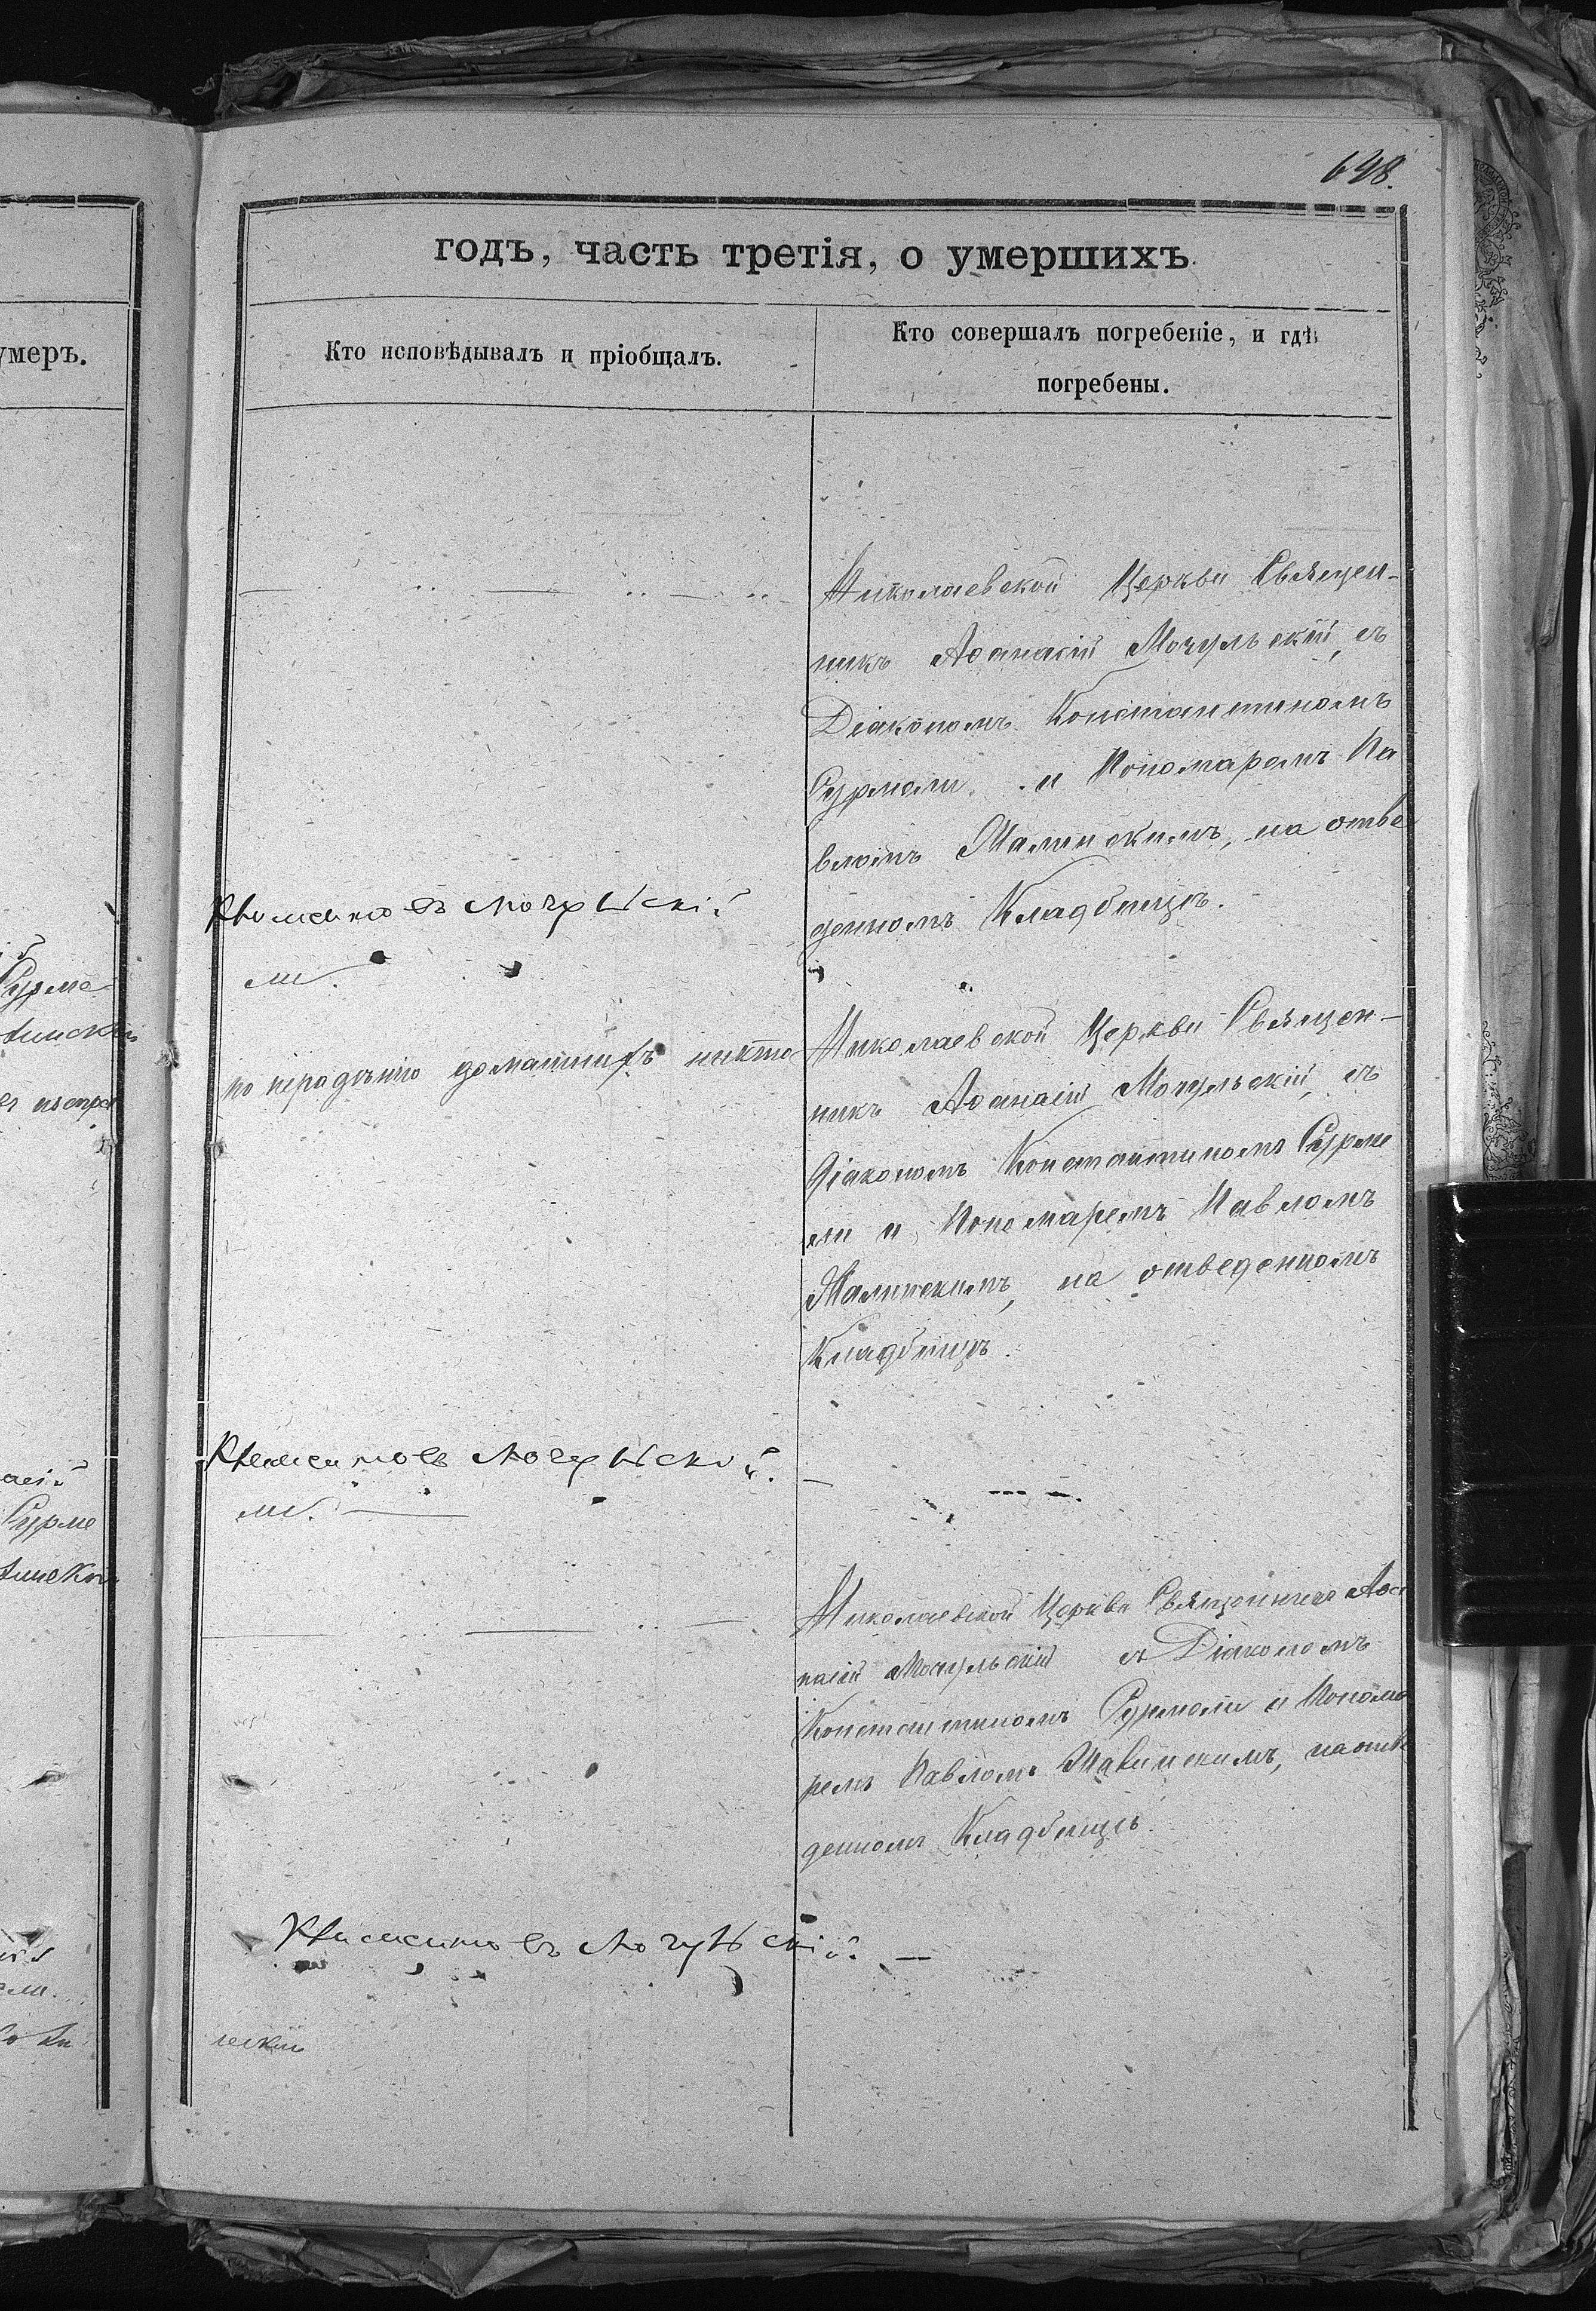 698.
годъ, часть третія, о умершихъ.
умеръ.
Кто исповѣдывалъ и пріобщалъ.
Кто совершалъ погребеніе, и гдѣ
погребены.
Николаевской Церкви Священ-
никъ Аѳанасій Мочульскій, съ
Діакономъ Константиномъ
Сурмели и Пономаремъ Па
вломъ Малинскимъ, на отве
денномъ Кладбищѣ.
Мочульскій
ли.
по нерадѣнію домашнихъ никто
Николаевской Церкви Священ-
никъ Аѳанасій Мочульскій, съ
Діакономъ Константиномъ Сурме
ли и Пономаремъ Павломъ
Малинскимъ, на отведенномъ
Кладбищѣ.
Мочульскій.
ли.
Николаевской Церкви Священникъ Аѳа
насій Мочульскій съ Діакономъ
Константиномъ Сурмели и Понома
ремъ Павломъ Малинскимъ, на отве
денномъ Кладбищѣ.
Мочульскій.
нскій
Сурме
Сурме